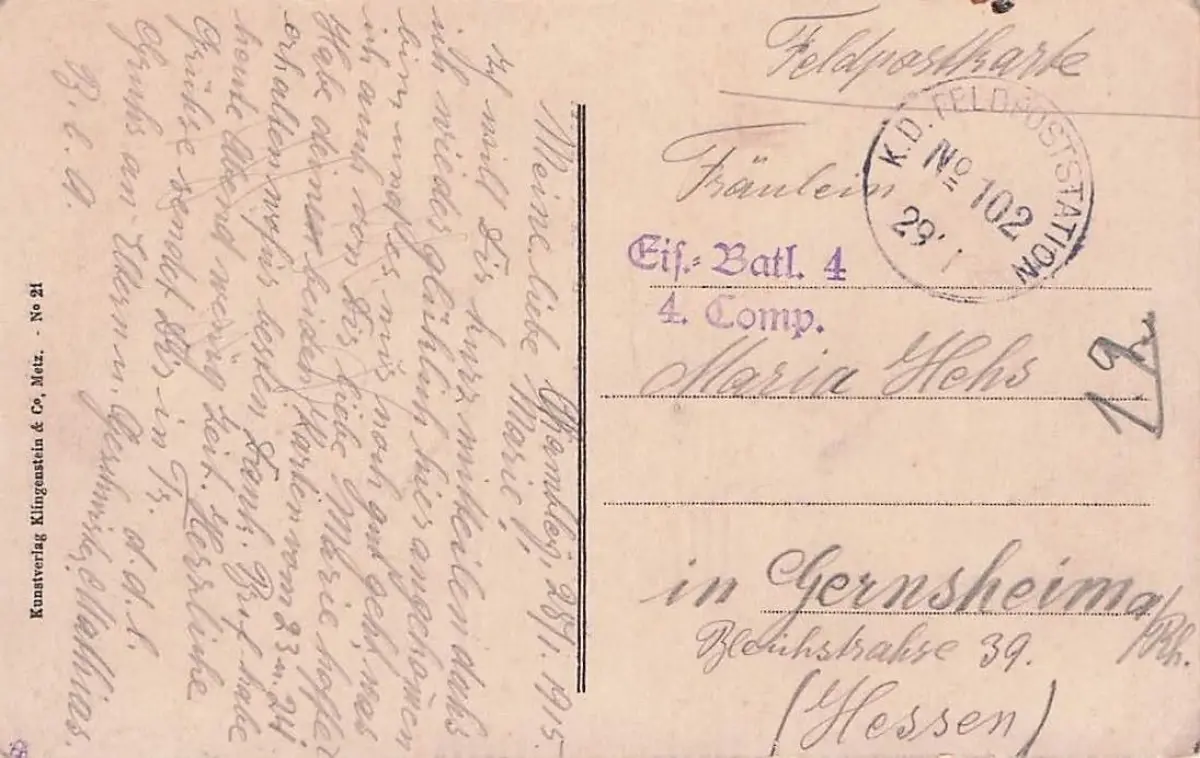 Feldpostkarte
K. D. FELDPOSTSTATION
No 102
29. 1
Fräulein
Eis.-Batl. 4
4. Comp.
Maria Hehs
12
in Gernsheim a/Rh.
Bleichstrahse 39.
(Hessen)
1915.
Meine liebe Marie,
will Dir kurz mitteilen dahs
ich wieder glücklich hier angekomen
bin, und es mir noch gut geht, was
ich auch von Dir liebe Marie hoffe.
Habe deinen beiden Karten vom 23 u. 24
erhalten wofür besten Dank. Brief habe
heute Abend wenig Zeit. Herzliche
Grühse sendet Dir in Tr. d. d. l.
Gruhs an Eltern u. Geschwister, Mathias.
B. l. A.
Kunstverlag Klingenstein & Co, Metz. - No 21